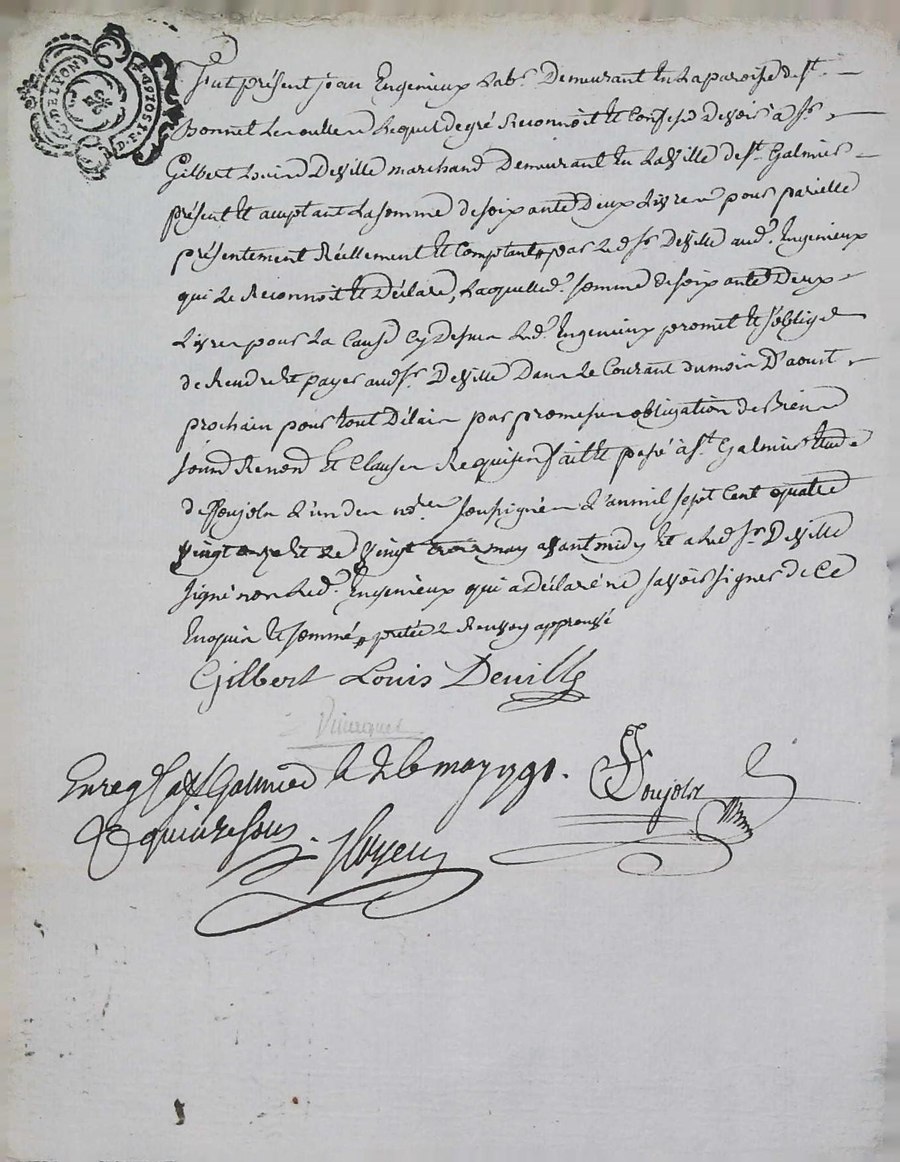 G. DE LYON D.F. 1S. 4D. P.
Fut présent jean Engenieux Labr. Demeurant En La paroisse de st.
Bonnet Les oulles Lequel de gré Reconnoit Et Confesse Devoir à sr.
Gilbert Louis Deville marchand Demeurant En La Ville de st. Galmier
présent Et aceptant La somme de soixante Deux Livres pour pareille
présentement Réellement Et Comptant par Led. sr. Deville aud. Engenieux
qui Le Reconnoit Et Déclare, Laquelle d. somme de soixante Deux
Livres pour La Cause Cy Dessus Led. Engenieux promet Et s'oblige
de Rendre Et payer aud. sr. Deville Dans Le Courant du mois D'aoust
prochain pour tout Délais par promesses obligation de Biens
soumd Renond Et Clauses Requises fait Et passé à st. Galmier Etude
de Soujolx L'un des nores soussignés L'an mil sept Cent quatre
vingt onze Et Le vingt trois may avant midy Et a Led. sr. Deville
signé non Led. Engenieux qui a Déclaré ne savoir signer de Ce
Enquis Et sommé prétée Renvoy approuvé
Gilbert Louis Deville
Enreg. à st Galmier le 26 may 1791.
R quinze sous
Soujolx